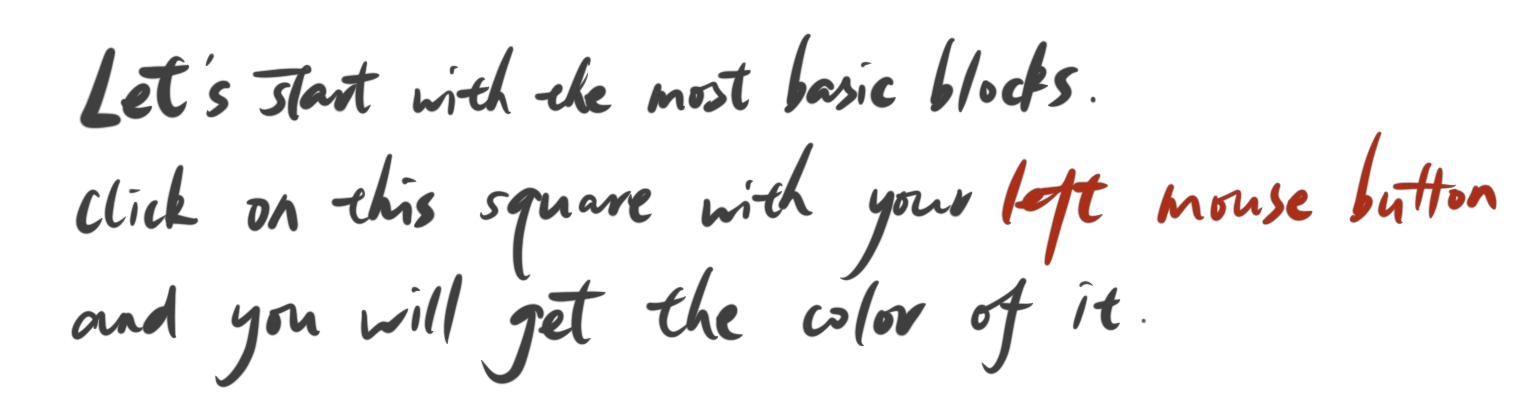 Let's start with the most basic blocks.
Click on this square with your left mouse button
and you will get the color of it.